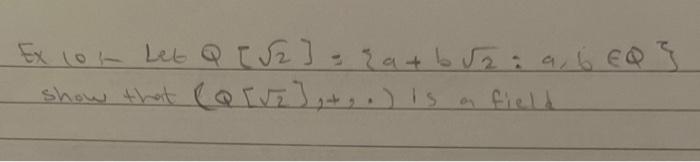 Ex 10:- Let Q [√2] = {a + b√2 : a, b ∈ Q}
show that (Q[√2], +, .) is a field